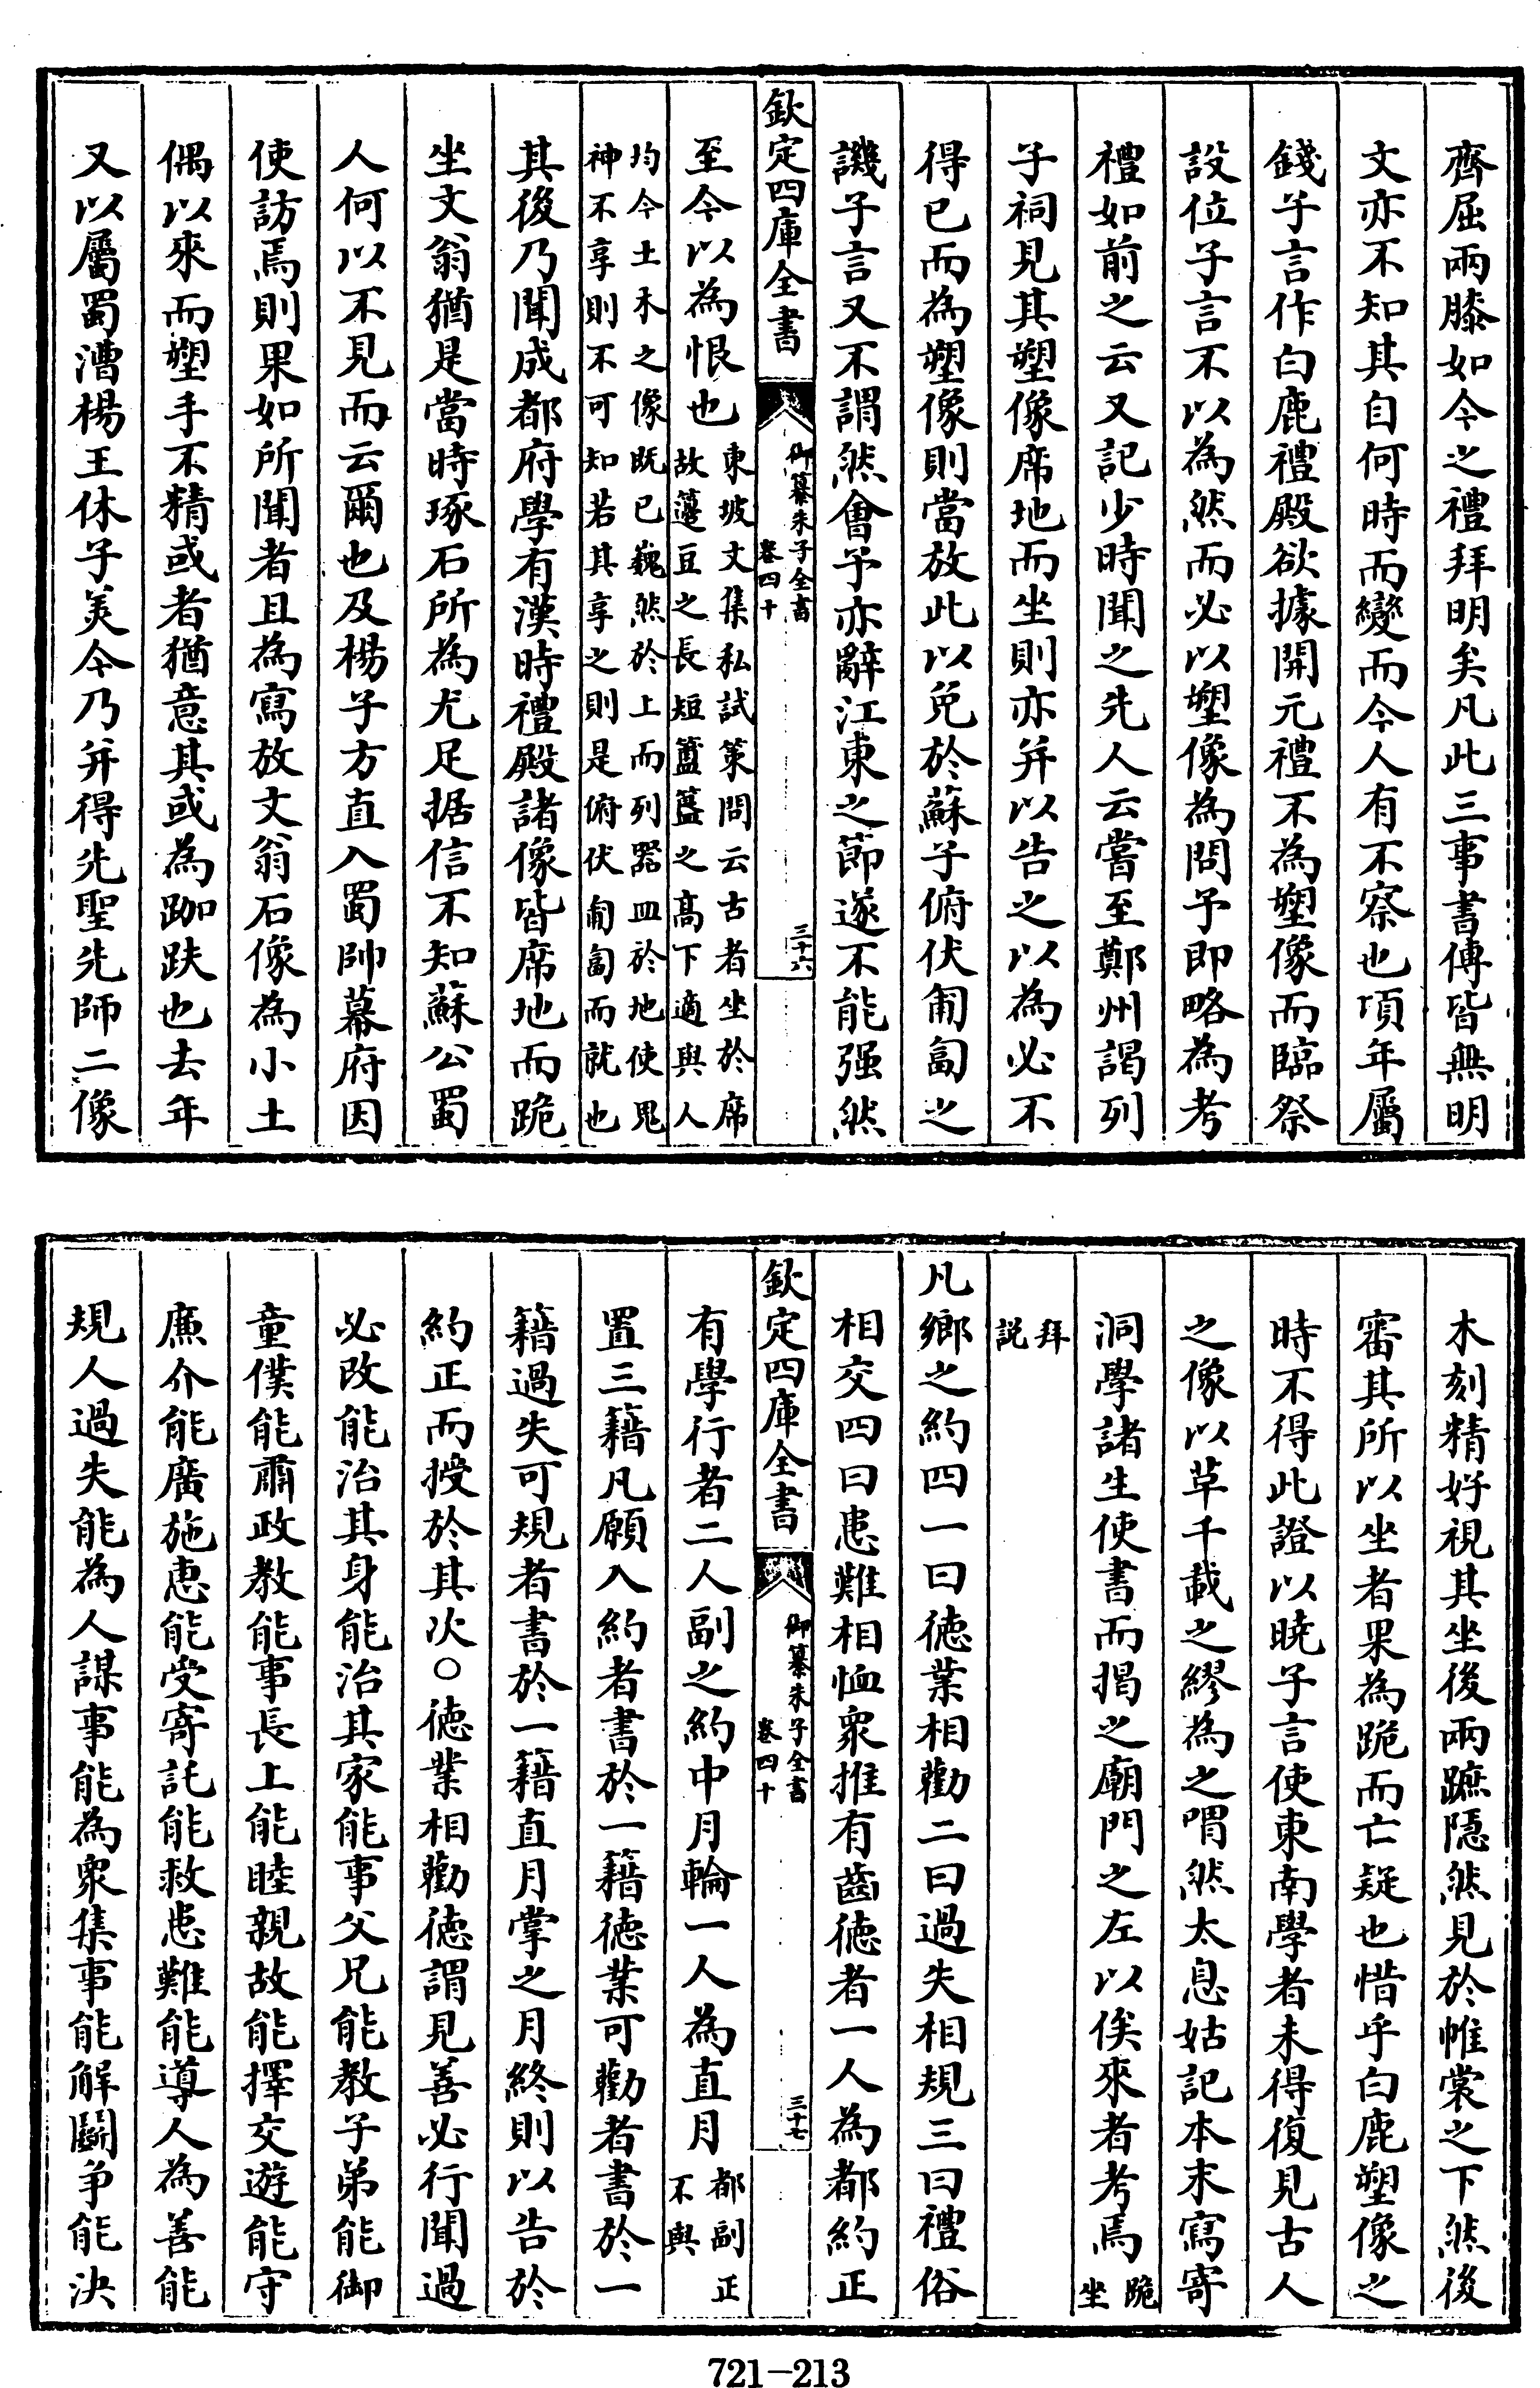 齊屈兩膝如今之禮拜明矣凡此三事書傳皆無明
文亦不知其自何時而變而今人有不察也頃年屬
錢子言作白鹿禮殿欲據開元禮不為塑像而臨祭
設位子言不以為然而必以塑像為問予即略為考
禮如前之云又記少時聞之先人云嘗至鄭州謁列
子祠見其塑像席地而坐則亦并以告之以為必不
得已而為塑像則當放此以免於蘇子俯伏匍匐之
譏子言又不謂然會予亦辭江東之節遂不能强然
欽定四庫全書
御纂朱子全書
卷四十
三十六
至今以為恨也東坡文集私試策問云古者坐於席
故籩豆之長短簠簋之高下適與人
均今土木之像既已巍然於上而列器皿於地使鬼
神不享則不可知若其享之則是俯伏匍匐而就也
其後乃聞成都府學有漢時禮殿諸像皆席地而跪
坐文翁猶是當時琢石所為尤足据信不知蘇公蜀
人何以不見而云爾也及楊子方直入蜀帥幕府因
使訪焉則果如所聞者且為寫放文翁石像為小土
偶以來而塑手不精或者猶意其或為跏趺也去年
又以屬蜀漕楊王休子美今乃并得先聖先師二像
木刻精好視其坐後兩蹠隱然見於帷裳之下然後
審其所以坐者果為跪而亡疑也惜乎白鹿塑像之
時不得此證以曉子言使東南學者未得復見古人
之像以草千載之繆為之喟然太息姑記本末寫寄
洞學諸生使書而揭之廟門之左以俟來者考焉跪
坐
拜
説
凡鄉之約四一曰徳業相勸二曰過失相規三曰禮俗
相交四曰患難相恤衆推有齒徳者一人為都約正
欽定四庫全書
御纂朱子全書
卷四十
三十七
有學行者二人副之約中月輪一人為直月都副正
不與
置三籍凡願入約者書於一籍徳業可勸者書於一
籍過失可規者書於一籍直月掌之月終則以告於
約正而授於其次○徳業相勸徳謂見善必行聞過
必改能治其身能治其家能事父兄能教子弟能御
童僕能肅政教能事長上能睦親故能擇交遊能守
廉介能廣施惠能受寄託能救患難能導人為善能
規人過失能為人謀事能為衆集事能解鬭争能決
721-213